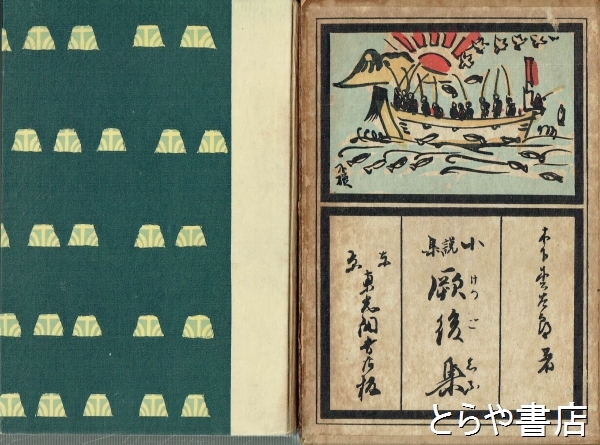 木下杢太郎 著
小説集
厥後集
けつごしふ
東京
東光閣書店板
とらや書店